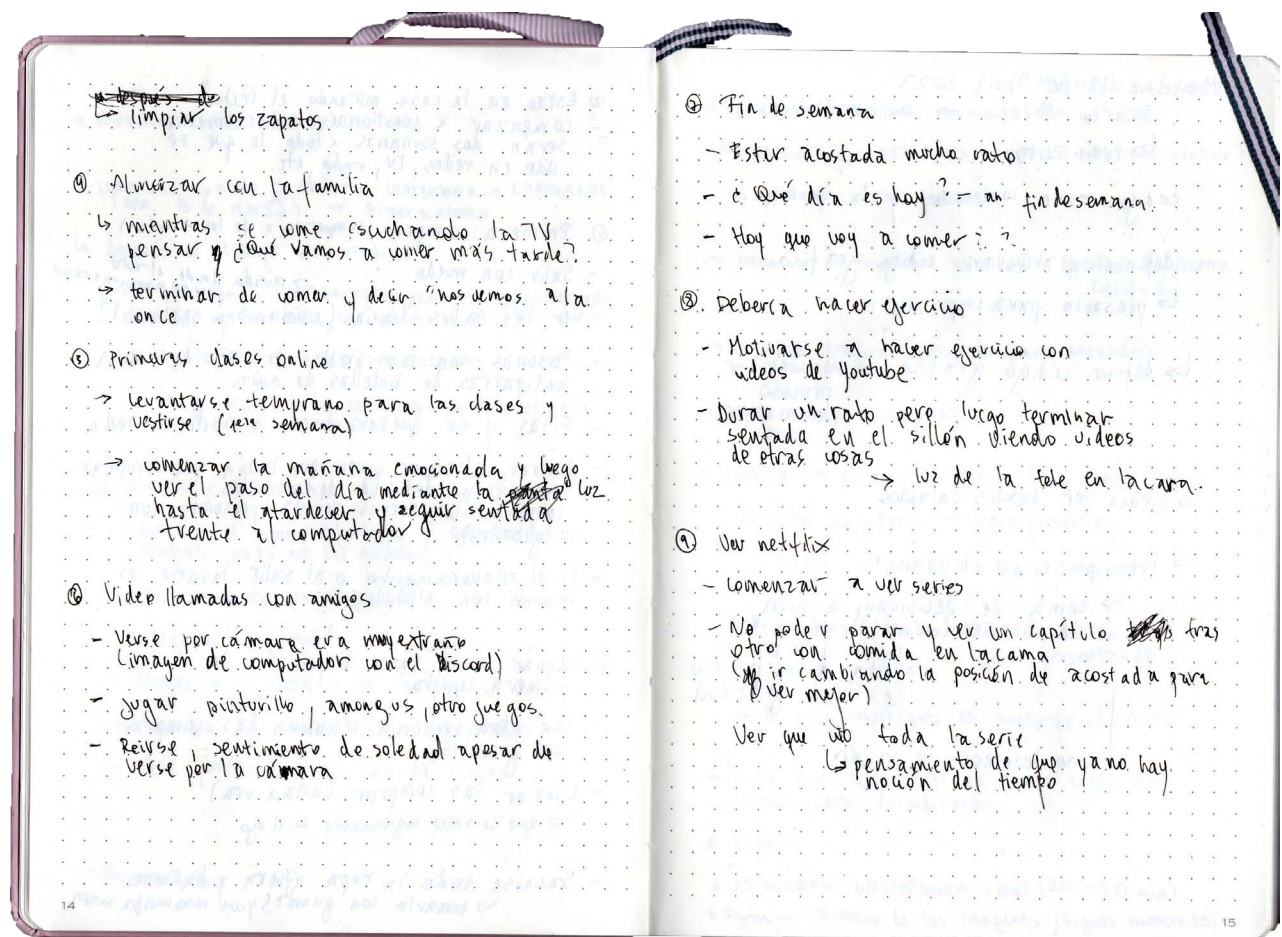 después de
↳ limpiar los zapatos
④ Almorzar con la familia
↳ mientras se come escuchando la TV
pensar y ¿Qué vamos a comer más tarde?
→ terminar de comer y decir "nos vemos a la
once
⑤ Primeras clases online
→ levantarse temprano para las clases y
vestirse (1era semana)
→ comenzar la mañana emocionada y luego
ver el paso del día mediante la luz
hasta el atardecer y seguir sentada
frente al computador
⑥ Video llamadas con amigos
- Verse por cámara era muy extraño
(imagen de computador con el Discord)
- Jugar pinturillo, amongus, otro juegos.
- Reirse, sentimiento de soledad apesar de
verse por la cámara
14
⑦ Fin de semana
- Estar acostada mucho rato
- ¿Qué día es hay? ah fin de semana!
- Hoy que voy a comer ? ?
⑧ Debería hacer ejercicio
- Motivarse a hacer ejercicio con
videos de Youtube
- Durar un rato pero luego terminar
sentada en el sillón viendo videos
de otras cosas
→ luz de la tele en la cara.
⑨ Ver netflix
- Comenzar a ver series
- No poder parar y ver un capítulo tras
otro con comida en la cama
(ir cambiando la posición de acostada para
ver mejor)
Ver que vio toda la serie
↳ pensamiento de que ya no hay
noción del tiempo
15